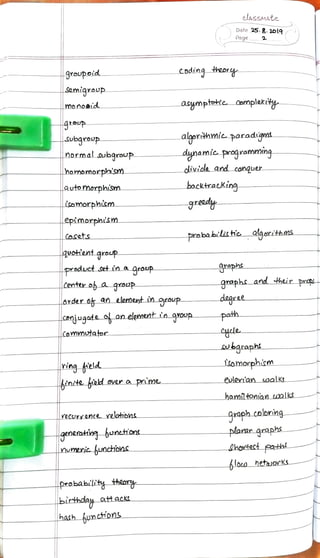 classmate
Date 25.8.2019
Page 2
groupoid
semigroup
monoid
group
subgroup
normal subgroup
homomorphism
automorphism
isomorphism
epimorphism
cosets
quotient group
product set in a group
center of a group
order of an element in group
conjugate of an element in group
commutator
ring field
finite field over a prime
recurrence relations
generating functions
numeric functions
probability theory
birthday attacks
hash functions
coding theory
asymptotic complexity
algorithmic paradigms
dynamic programming
divide and conquer
backtracking
greedy
probabilistic algorithms
graphs
graphs and their props
degree
path
cycle
subgraphs
isomorphism
eulerian walks
hamiltonian walks
graph coloring
planar graphs
shortest paths
flow networks